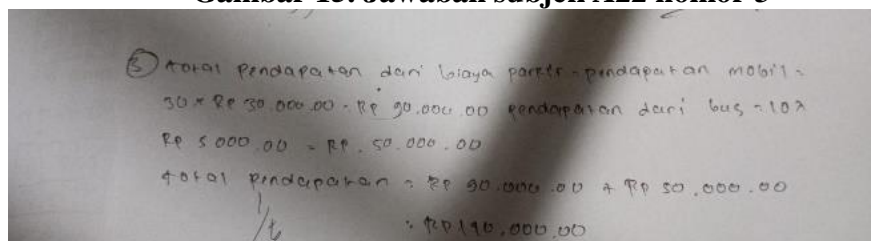 Gambar 15. Jawaban subjek A22 nomor 3
③ total pendapatan dari biaya parkir = pendapatan mobil =
30 × Rp 30.000.00 = Rp 90.000.00 pendapatan dari bus = 10 x
Rp 5000.00 = Rp. 50.000.00
total pendapatan = Rp 90.000.00 + Rp 50.000.00
= Rp 140.000.00